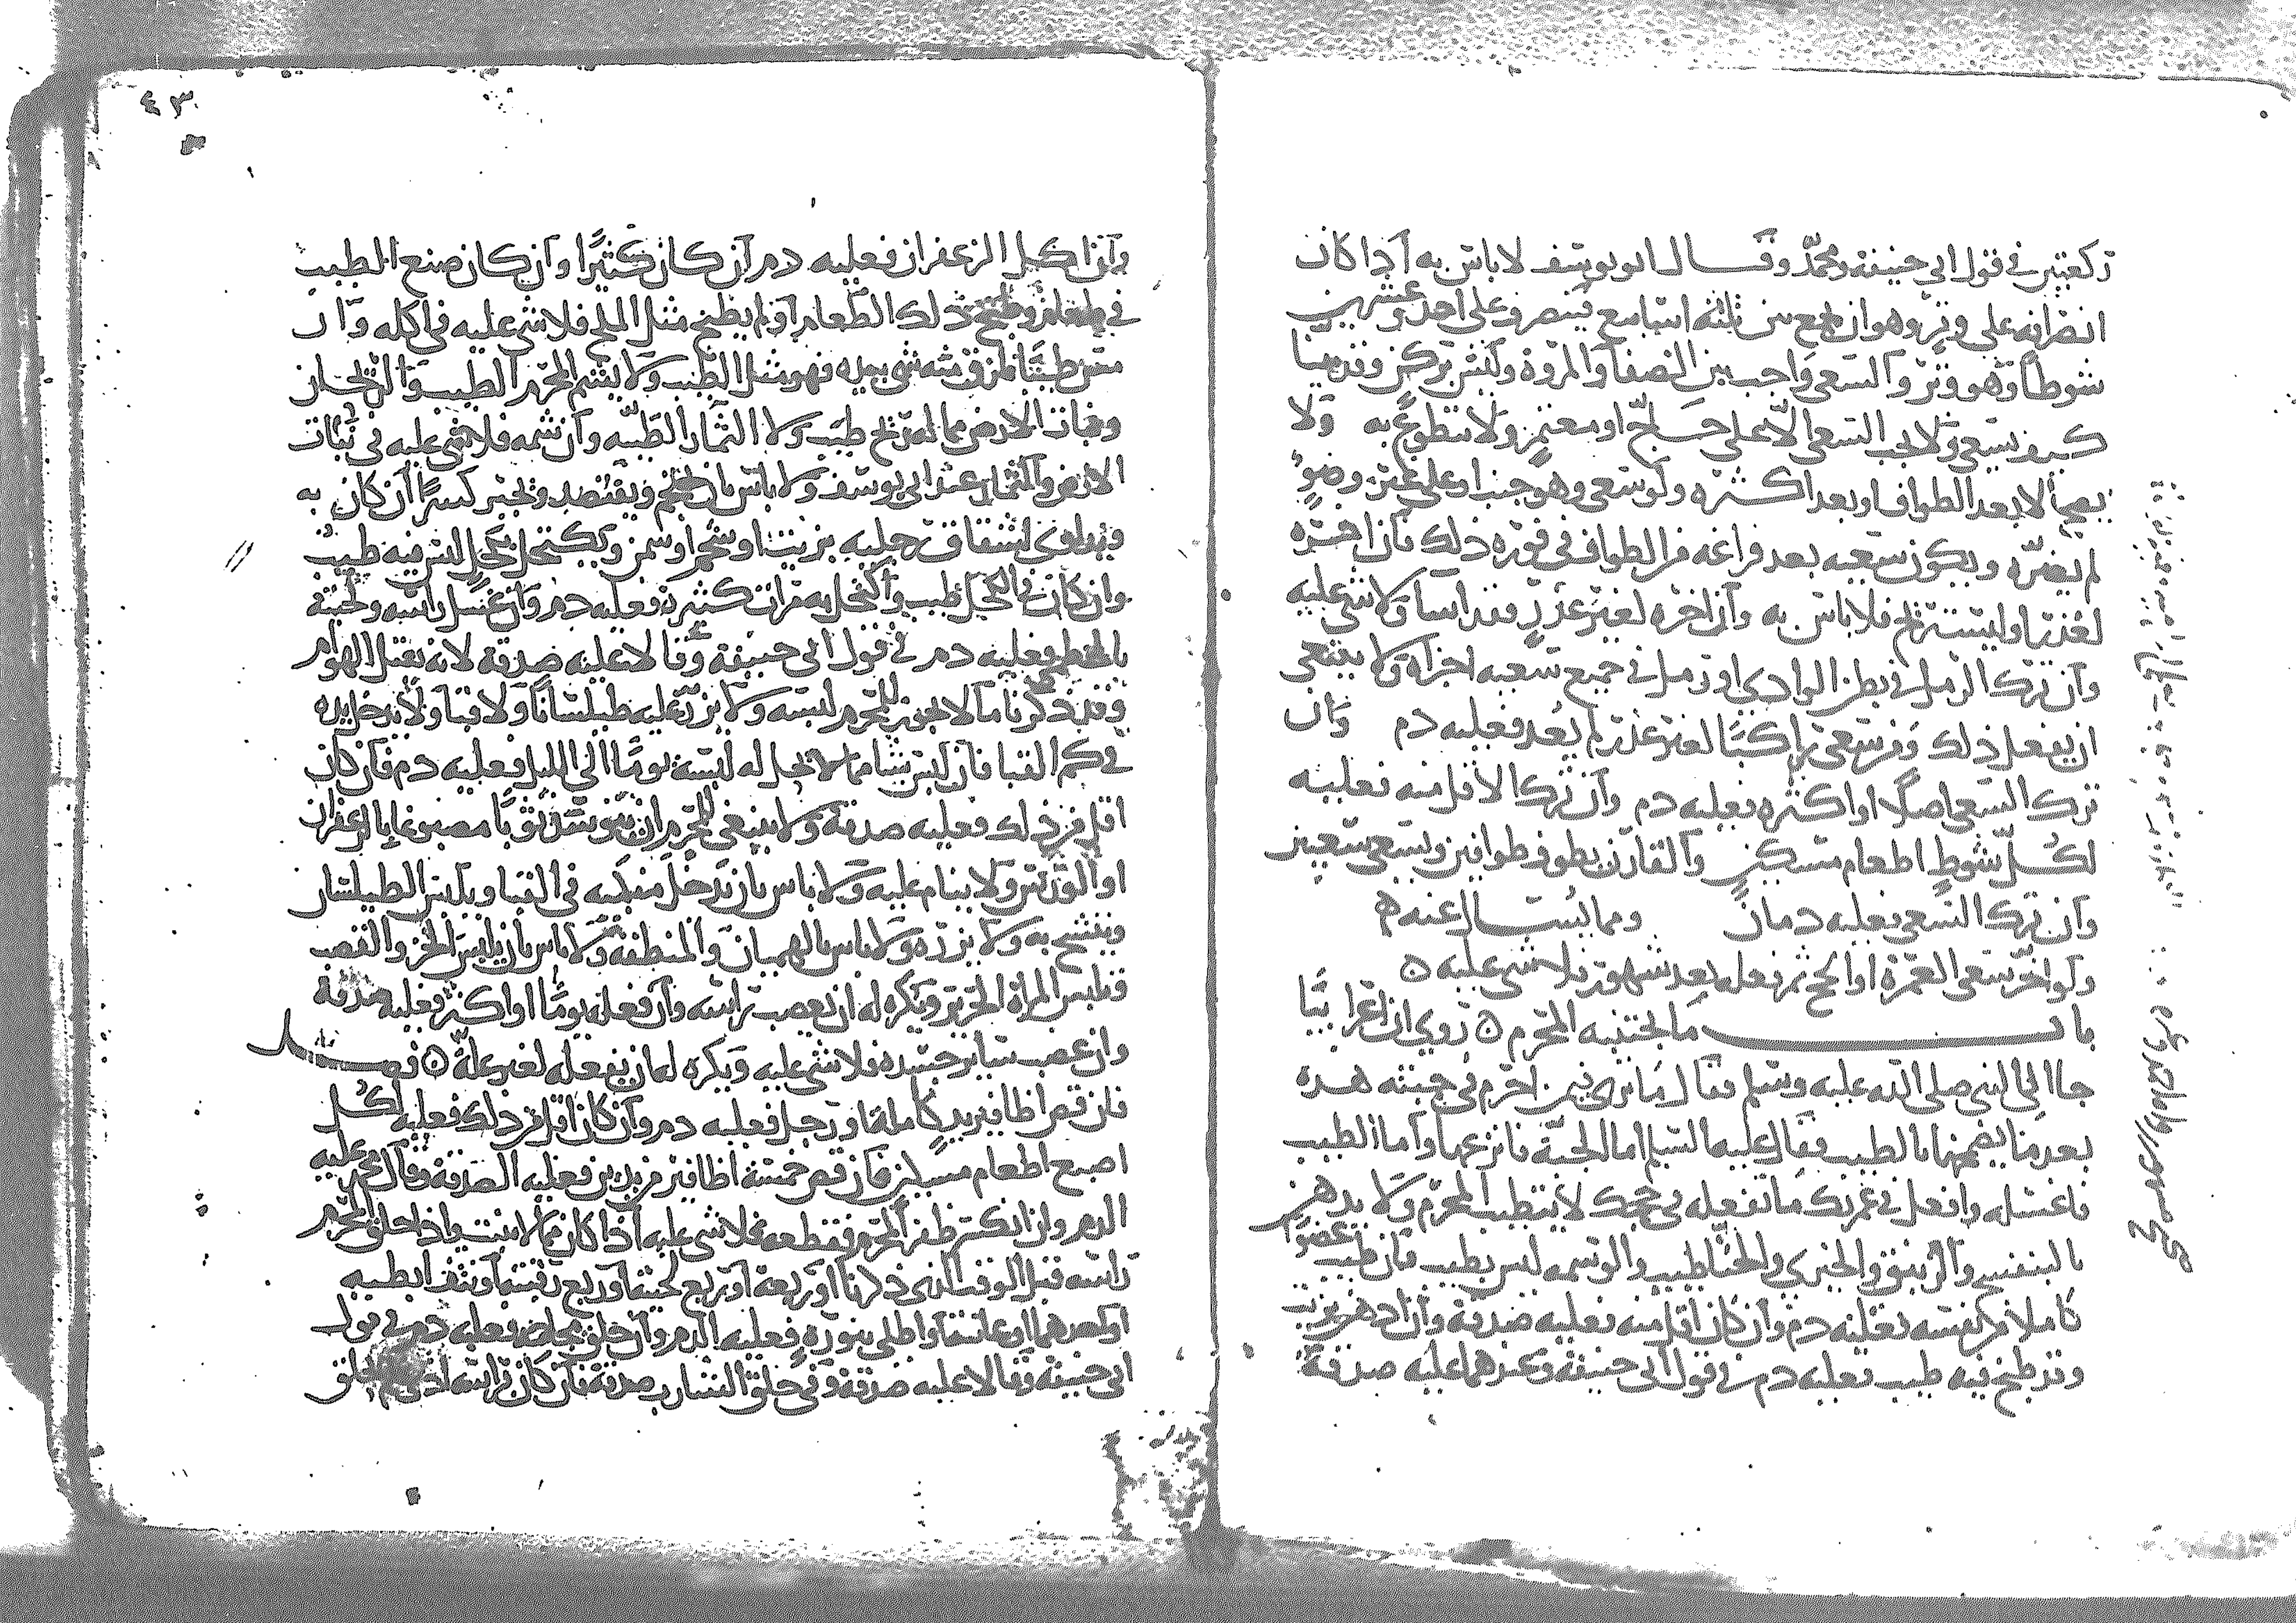 ركعتين في قول ابي حنيفة ومحمد وقال ابو يوسف لا باس به اذا كان
انصرافه على وتر وهو ان يجمع بين ثلثة اسابيع ينصرف على احد وعشرين
شوطا وهو وتر والسعي واجب بين الصفا والمروة وليس بركن وقد بينا
كيف يسعى ولا يجب السعي الا على حاج او معتمر ولا يتطوع به ولا
يصح الا بعد الطواف او بعد اكثره ولو سعى وهو جنب او على غير وضوء
لم يضره ويكون سعيه بعد فراغه من الطواف في فوره ذلك فان اخره
لعذر او ليستريح فلا باس به وان اخره لغير عذر فقد اسا ولا شي عليه
وان ترك الرمل في بطن الوادي او رمل في جميع سعيه اجزاه ولا ينبغي
ان يفعل ذلك ومن سعى راكبا لغير عذر لم يعد فعليه دم وان
ترك السعي اصلا او اكثره فعليه دم وان ترك الاقل منه فعليه
لكل شوط اطعام مسكين والقارن يطوف طوافين ويسعى سعيين
وان ترك السعي فعليه دمان ومما يسال عنه
ولو اخر سعي العمرة او الحج ثم فعله بعد شهور فلا شي عليه
باب ما يجتنبه المحرم روي ان اعرابيا
جا الى النبي صلى الله عليه وسلم فقال ما ترى فيمن احرم في جبته هذه
بعد ما يضمخها بالطيب فقال عليه السلم اما الجبة فانزعها واما الطيب
فاغسله وافعل في عمرتك ما تفعله في حجك لا يتطيب المحرم ولا يدهن
بالبنفسج والزنبق والخيري والحنا طيب والوسمه ليس بطيب فان طيب عضوا
كاملا من نفسه فعليه دم وان كان اقل منه فعليه صدقة وان ادهن بزيت
وقد طبخ فيه طيب فعليه دم في قول ابي حنيفة وعندهما عليه صدقة
٤٣
وان اكل الزعفران فعليه دم ان كان كثيرا وان كان صنع الطيب
في طعام وطبخ ذلك الطعام او لم يطبخ مثل الملح فلا شي عليه في اكله وان
مس طيبا فلزق منه شي بيده فهو مثل الطيب ولا يشم المحرم الطيب والريحان
ونبات الارض مما له ريح طيب ولا الثمار الطيبه وان شمه فلا شي عليه في نبات
الارض والثمار عند ابي يوسف ولا باس بان يحتجم ويفتصد ويجبر كسرا ان كان به
ويداوي شقاق رجليه بزيت او شحم او سمن ويكتحل بكحل ليس فيه طيب
وان كان في الكحل طيب واكتحل به مرات كثيرة فعليه دم وان غسل راسه ولحيته
بالخطمي فعليه دم في قول ابي حنيفة وقالا عليه صدقة لانه يقتل الهوام
وقد ذكرنا ما لا يجوز للمحرم لبسه ولا يزر عليه طيلسانا ولا قبا ولا يدخل يده
في كم القبا فان لبس شيا مما لا يحل له لبسه يوما الى الليل فعليه دم فان كان
اقل من ذلك فعليه صدقة ولا ينبغي للمحرم ان يتوسد ثوبا مصبوغا بالزعفران
او الورس ولا ينام عليه ولا باس بان يدخل منكبيه في القبا ويلبس الطيلسان
ويتشح به ولا يزره ولا باس بالهميان والمنطقة ولا باس بان يلبس الخز والقصب
وتلبس المراة الحرير ويكره له ان يعصب راسه وان فعله يوما او اكثر فعليه صدقة
وان عصب شيا من جسده فلا شي عليه ويكره له ان يفعله لغير علة فصل
فان قص اظافير يد كاملة او رجل فعليه دم وان كان اقل من ذلك فعليه لكل
اصبع اطعام مسكين فان قص خمسة اظافير من يدين فعليه الصدقة وقال محمد عليه
الدم وان انكسر ظفر المحرم فقطعه فلا شي عليه اذا كان مما لا ينبت واذا حلق المحرم
راسه قبل الوقت الذي ذكرنا او ربعه او ربع لحيته او ربع رقبته او نتف ابطيه
او احدهما او عانته او اطلى بنوره فعليه الدم وان حلق محاجمه فعليه دم في قول
ابي حنيفة وقالا عليه صدقة وفي حلق الشارب صدقة فان كان براسه اذى فحلق